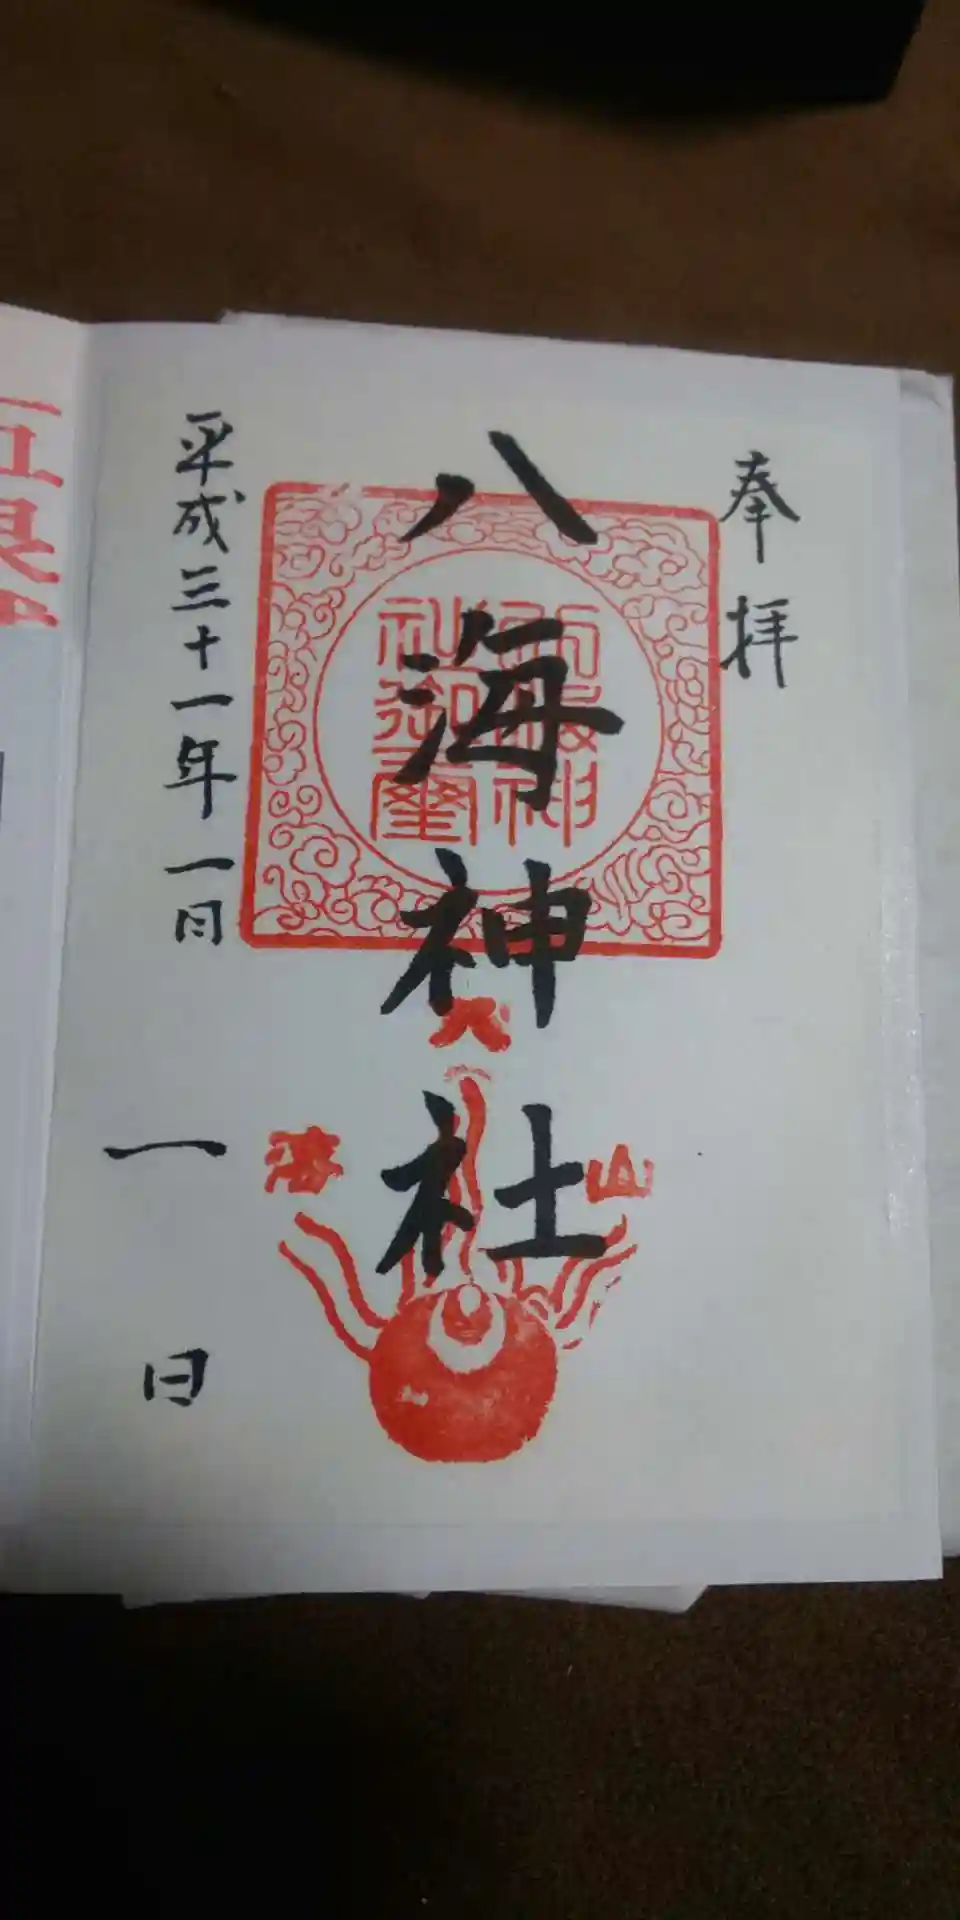 奉拝
八海神社
平成三十一年一月一日
八
海
山